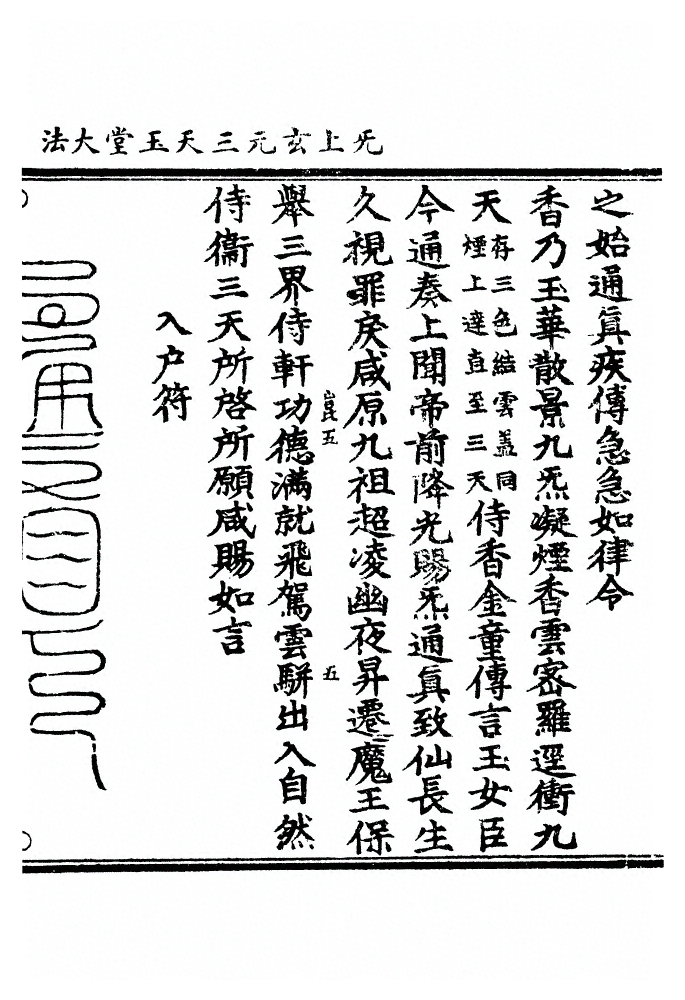 无上玄元三天玉堂大法
之始通眞疾傳急急如律令
香乃玉華散景九炁凝煙香雲密羅逕衝九
天存三色結雲蓋同煙上達直至三天侍香金童傳言玉女臣
今通奏上聞帝前降光賜炁通眞致仙長生
久視罪戾咸原九祖超凌幽夜昇遷魔王保
崑五
五
舉三界侍軒功德滿就飛駕雲騈出入自然
侍衞三天所啓所願咸賜如言
入户符